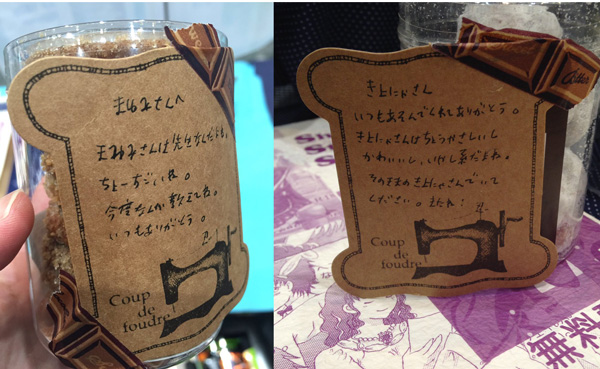 まゆおさんへ
まゆおさんは先生なんだよね、
ちょーすごいね。
今度なんか教えてね。
いつもありがとう。
Coup
de
foudre!
きよにゃさん
いつもあそんでくれてありがとう。
きよにゃさんはちょうやさしいし
かわいいし、いけじ喜だよね。
そのままのきよにゃさんでいて
ください。またね!
Coup
de
foudre!